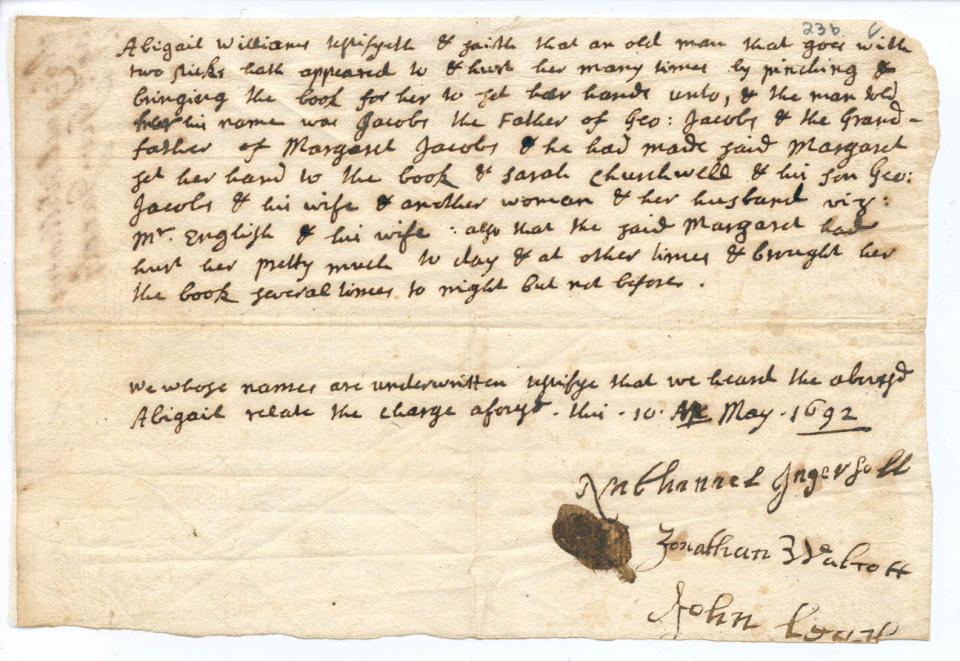 236 6
Abigail Williams testifyeth & saith that an old man that goes with
two sticks hath appeared to & hurt her many times by pinching &
bringing the book for her to set her hands unto, & the man told
her his name was Jacobs the Father of Geo: Jacobs & the Grand-
father of Margaret Jacobs & he had made said Margaret
set her hand to the book & Sarah Churchwell & his son Geo:
Jacobs & his wife & another woman & her husband viz:
Mr. English & his wife: also that the said Margaret had
hurt her pretty much to day & at other times & brought her
the book several times to night but not before.
we whose names are underwritten testifye that we heard the abovesd
Abigail relate the charge aforesd. this. 10. May. 1692
Nathanael Ingersoll
Jonathan Walcott
John